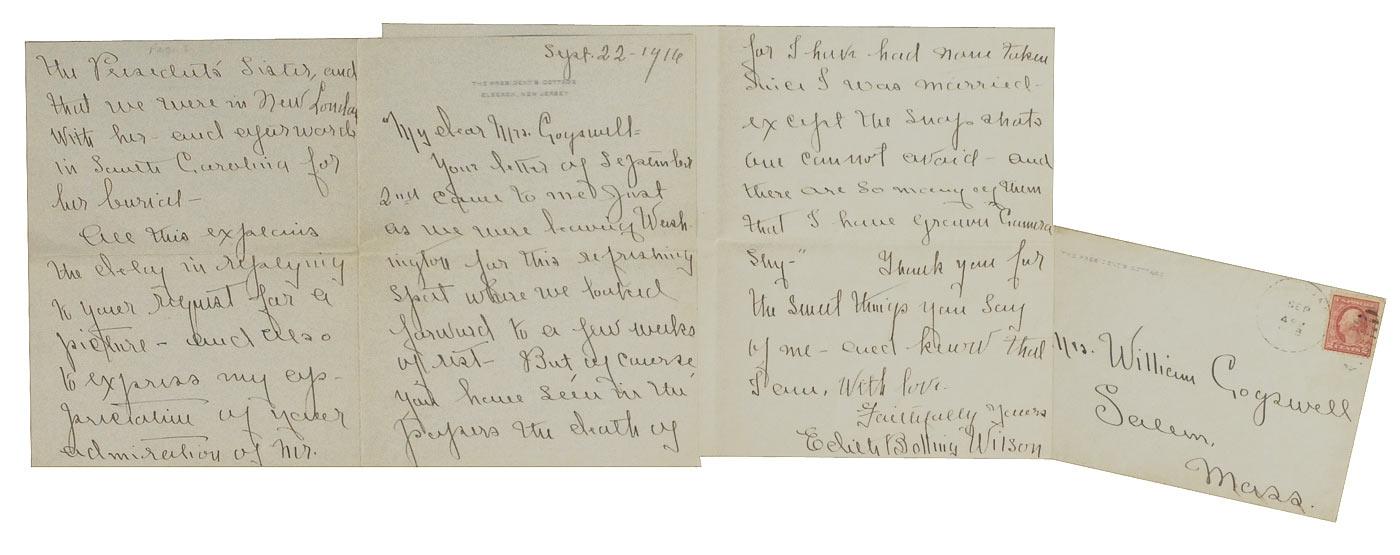 Sept. 22 - 1916
THE PRESIDENT'S COTTAGE
ELBERON, NEW JERSEY
"My dear Mrs. Cogswell-
Your letter of September
2nd came to me just
as we were leaving Wash-
ington for this refreshing
spot where we looked
forward to a few weeks
of rest - But of course
you have seen in the
papers the death of
the President's Sister, and
that we were in New London
with her - and afterwards
in South Carolina for
her burial -
All this explains
the delay in replying
to your request for a
picture - and also
to express my ap-
preciation of your
admiration of Mr.
for I have had none taken
since I was married -
except the snap shots
one cannot avoid - and
there are so many of them
that I have grown "Camera
Shy-" Thank you for
the sweet things you say
of me - and know that
I am, with love.
Faithfully Yours
Edith Bolling Wilson
THE PRESIDENT'S COTTAGE
SEP
Mrs. William Cogswell
Salem,
Mass.